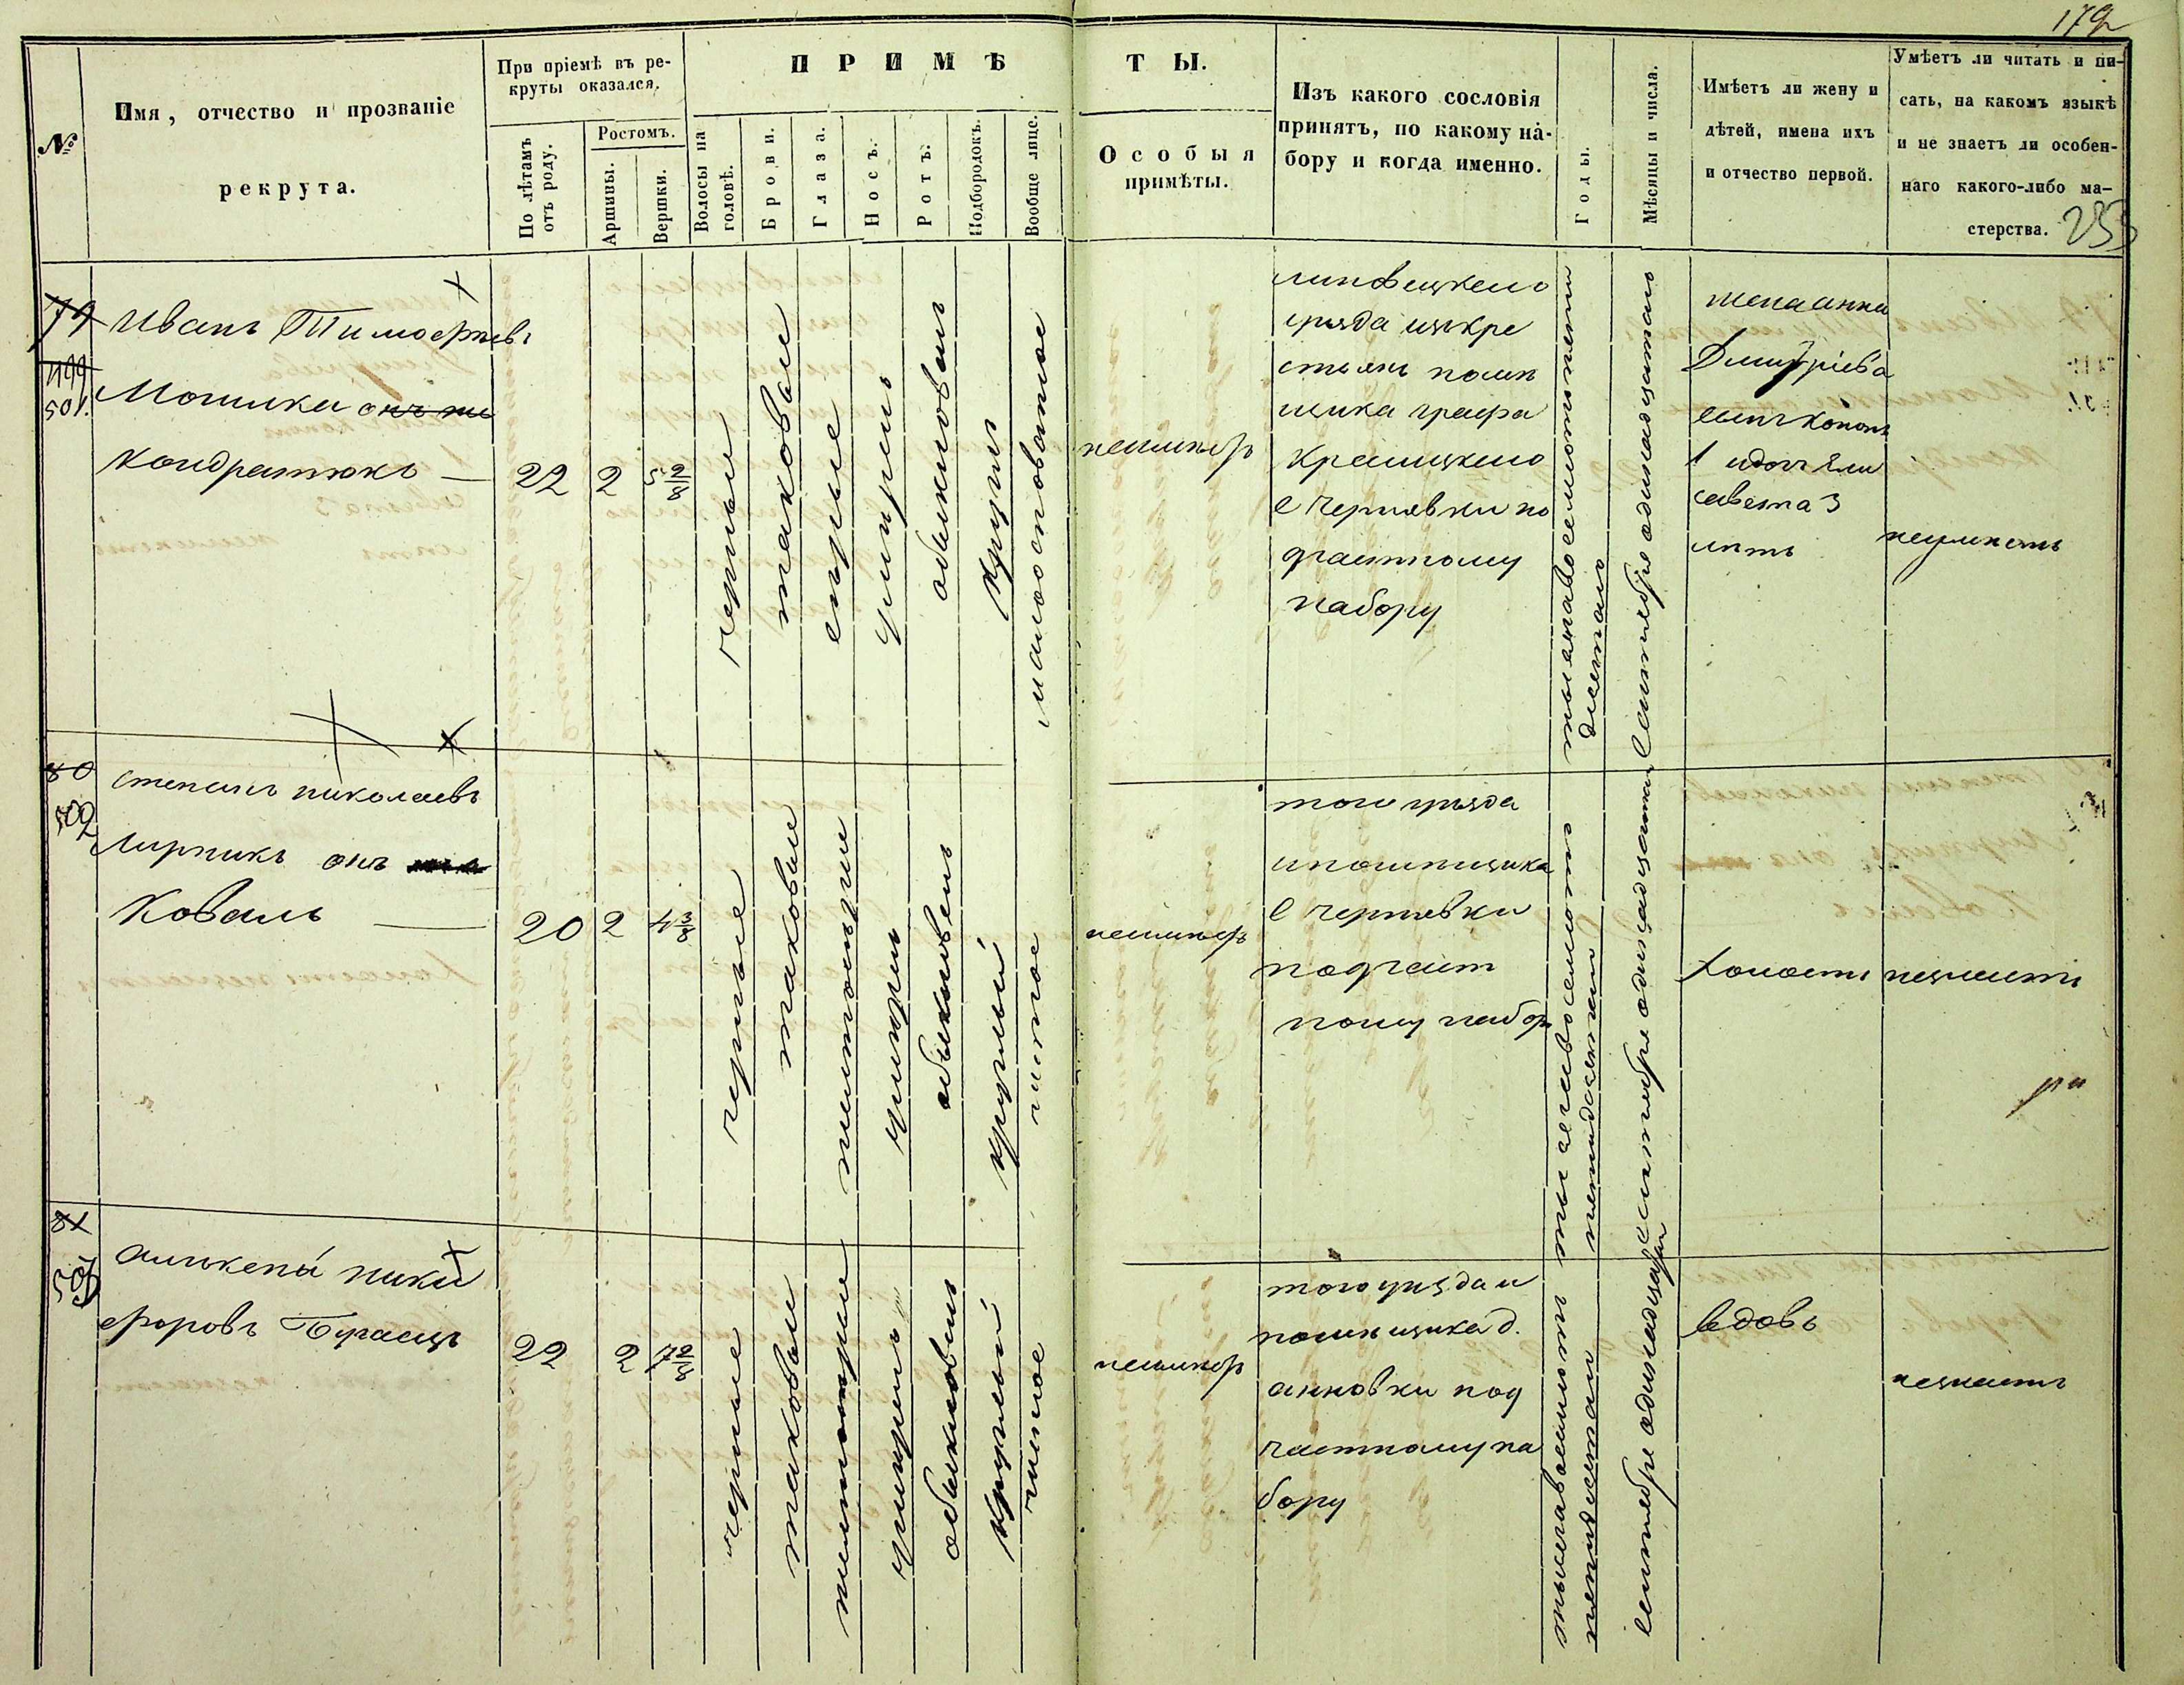 179
№
Имя, отчество и прозваніе
рекрута.
При пріемѣ въ ре-
круты оказался.
По лѣтамъ
отъ роду.
Ростомъ.
Аршины.
Вершки.
ПРИМѢТЫ.
Волосы на
головѣ.
Брови.
Глаза.
Носъ.
Ротъ.
Подбородокъ.
Вообще лице.
Особыя
примѣты.
Изъ какого сословія
принятъ, по какому на-
бору и когда именно.
Годы.
Мѣсяцы и числа.
Имѣетъ ли жену и
дѣтей, имена ихъ
и отчество первой.
Умѣетъ ли читать и пи-
сать, на какомъ языкѣ
и не знаетъ ли особен-
наго какого-либо ма-
стерства.
253
79
501.
Иванъ Тимофѣевъ
онъ же
Кондратюкъ
22
2
5 2/8
черные
таковые
серые
умирень
обыкновень
круглъ
малоосповатое
неимѣетъ
липовецкого
уѣзда изъ кре
стьянъ помѣ
щика графа
с Чернявки по
частному
набору
тысяча восемсотъ пять
десятаго
Сентября одинадцатаго
жена анна
Дмитріева
сынъ
1 идочь Ели
савета 3
лѣтъ
неумѣетъ
80
502
степанъ николаевъ
лирникъ онъ
Коваль
20
2
4 3/8
черные
таковые
умирень
обыкновень
круглый
чистое
неимѣетъ
того уѣзда
ипомѣщика
с чернявки
по част
ному набор
тысяча восемсотъ
пятидесятаго
Сентября одинадцатаго
холостъ
неумѣетъ
81
503
алексѣй ники
форовъ
22
2
7 2/8
черные
таковые
умирень
обыкновень
круглый
чистое
неимѣетъ
того уѣзда и
помѣщика д.
анновки по
частному на
бору
тысяча восемсотъ
пятидесятаго
сентября одинадцатаго
вдовъ
неумѣетъ